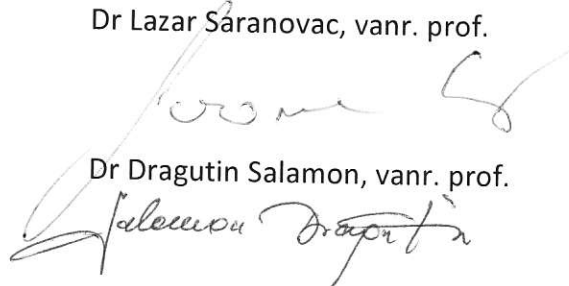 Dr Lazar Saranovac, vanr. prof.
Dr Dragutin Salamon, vanr. prof.
Salamon Dragutin